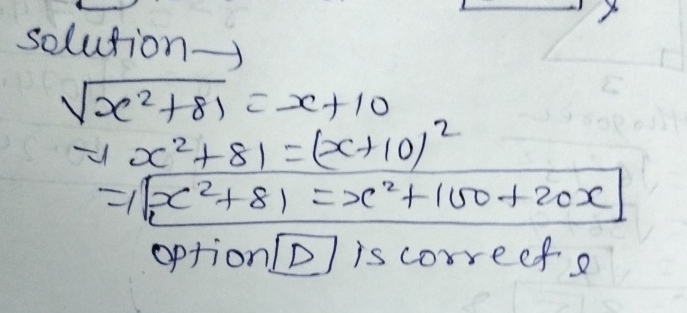 Solution →
√x²+81 = x+10
⇒ x²+81 = (x+10)²
⇒ x²+81 = x²+100+20x
option D is correct